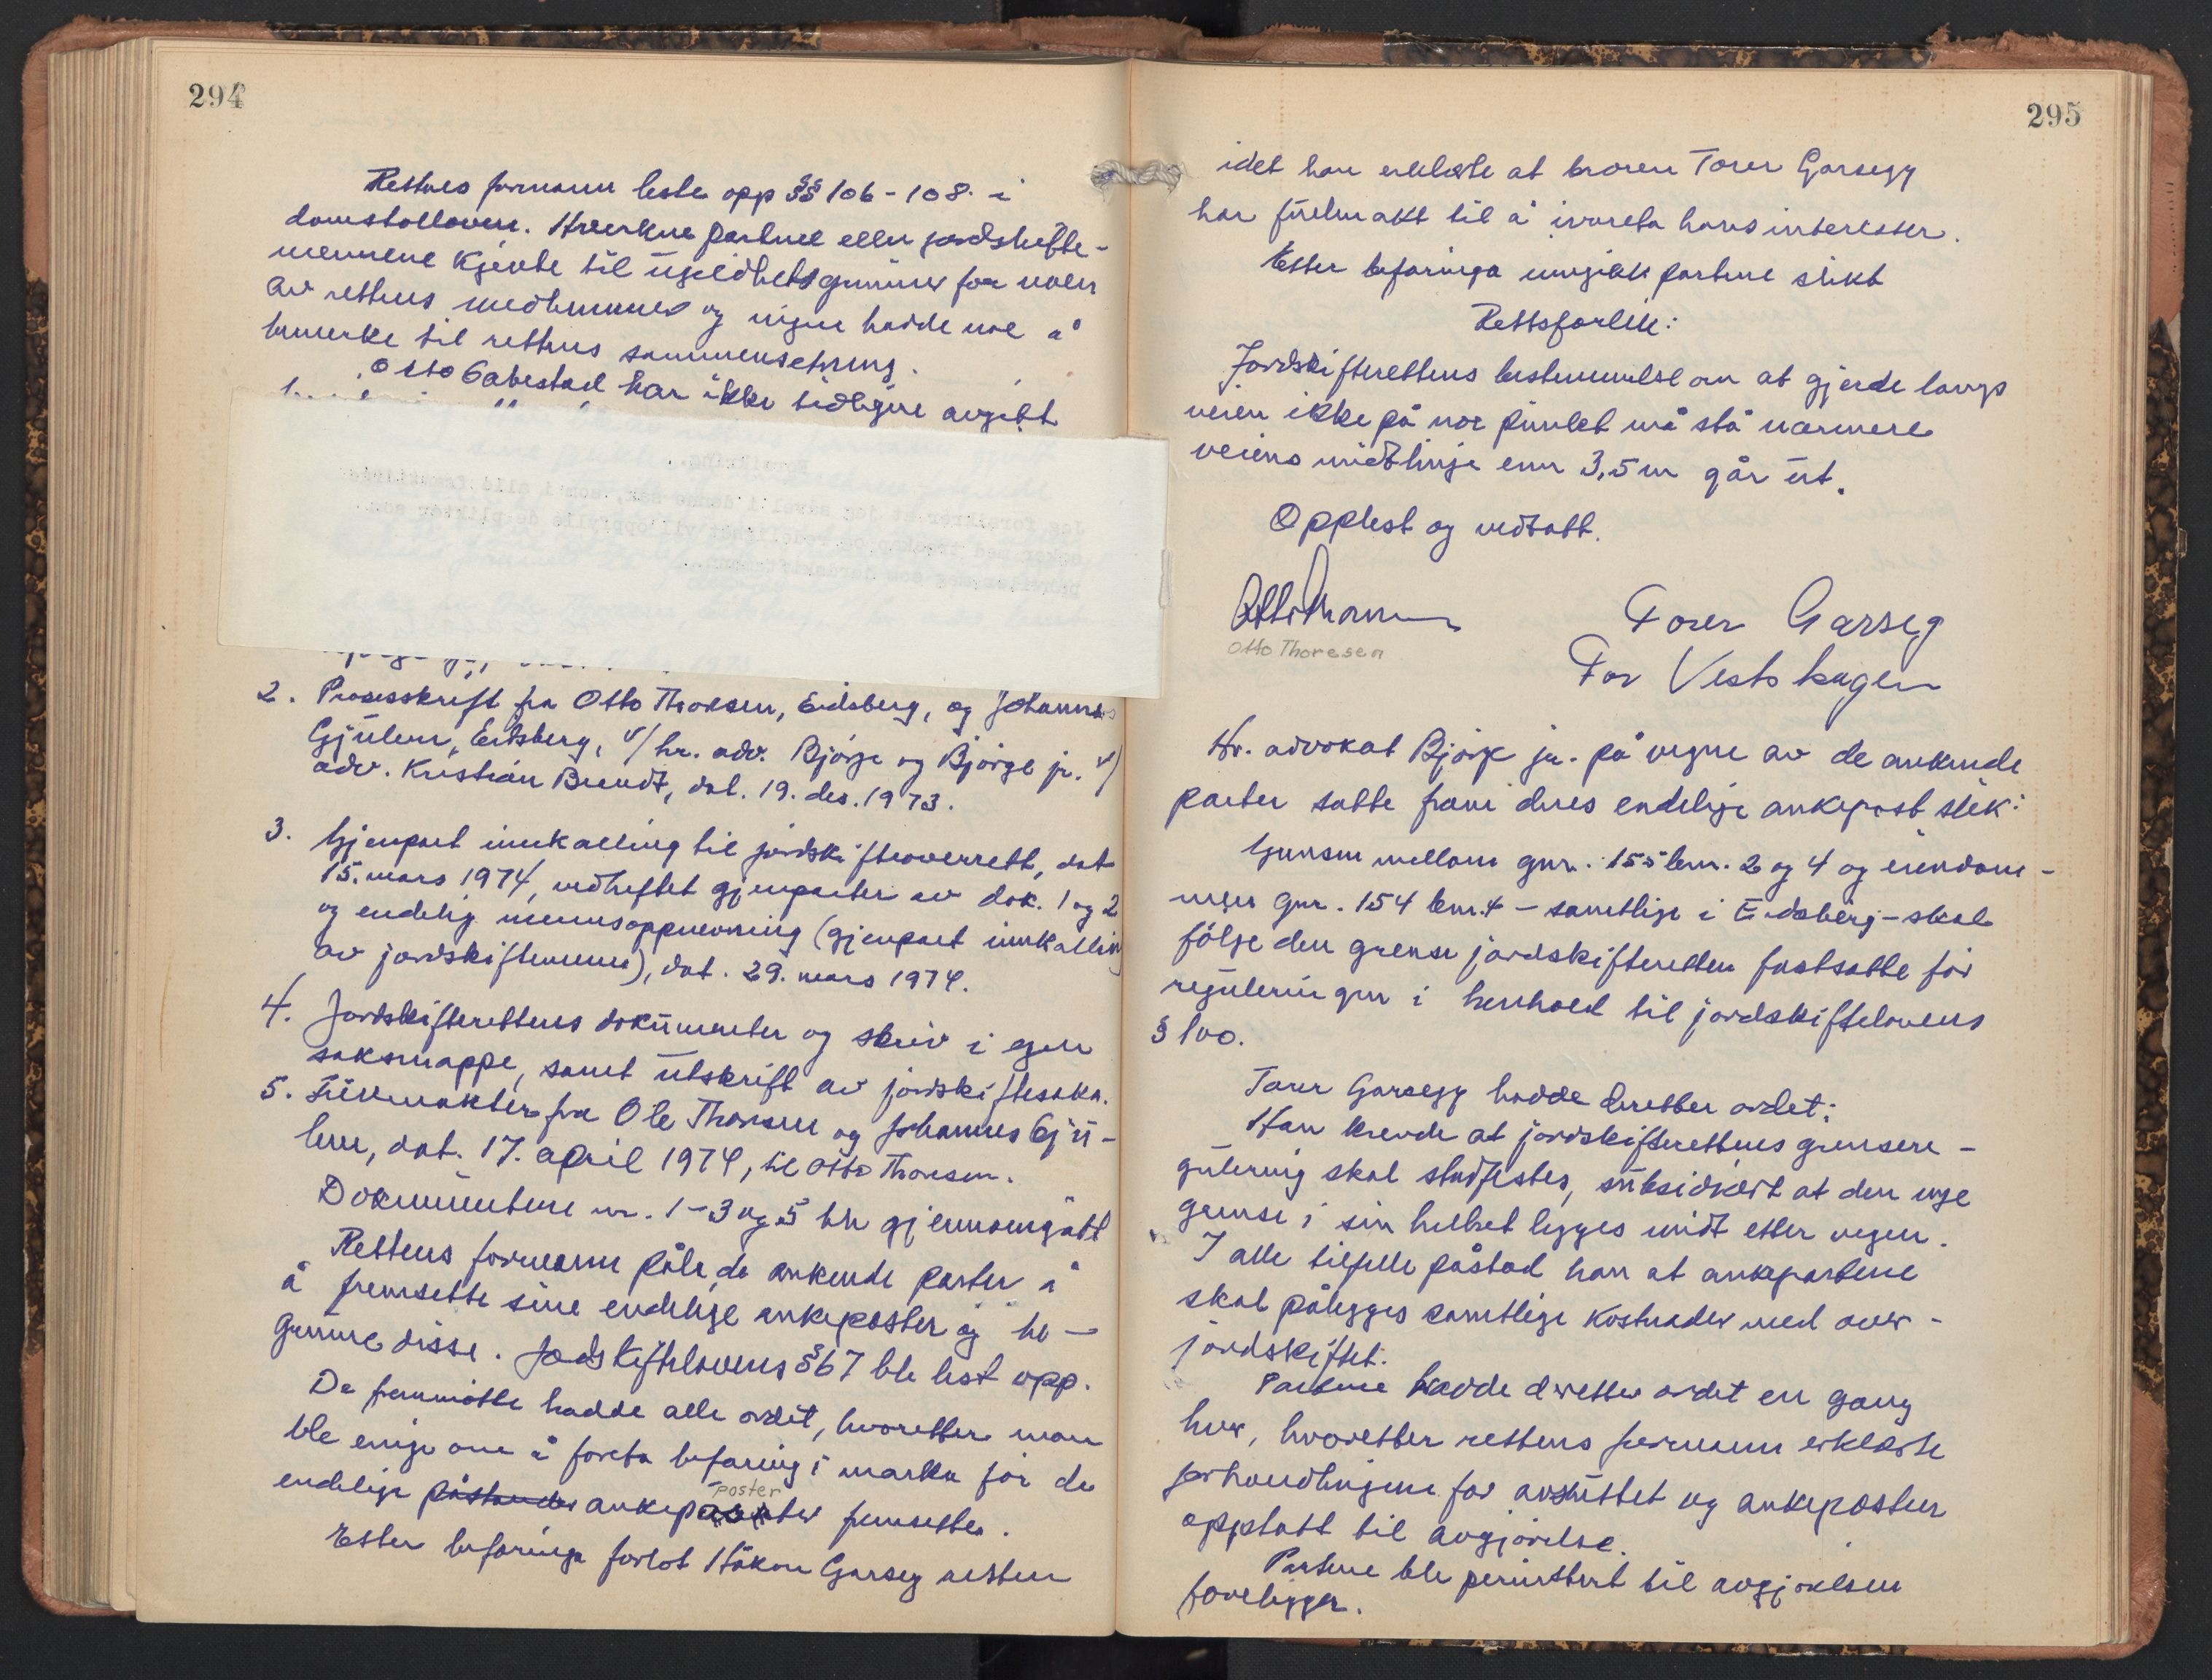 294
Rettens formann leste opp §§ 106-108 i
domstolloven. Hverken partene eller jordskifte-
mennene kjente til ugildhetsgrunner for noen
av rettens medlemmer og ingen hadde noe å
bemerke til rettens sammensetning.
Otto Gabestad har ikke tidligere avgitt
2. Prosesskrift fra Otto Thoresen, Eidsberg, og Johannes
Gjulem, Eidsberg, v/ hr. adv. Bjørge og Bjørge jr. v/
adv. Kristian Brendt, dat. 19. des. 1973.
3. Gjenpart innkalling til jordskifteoverrett, dat
15. mars 1974, vedheftet gjenparter av dok. 1 og 2
og endelig mennsoppnevning (gjenpart innkalling
av jordskiftemenn), dat. 29. mars 1974.
4. Jordskifterettens dokumenter og skriv i egen
saksmappe, samt utskrift av jordskiftesaka.
5. Fullmakter fra Ole Thoresen og Johannes Gju-
lem, dat. 17. april 1974, til Otto Thoresen.
Dokumentene nr. 1-3 og 5 ble gjennomgått
Rettens formann påla de ankende parter å
å fremsette sine endelige ankeposter og be-
grunne disse. Jordskiftelovens § 67 ble lest opp.
De fremmøtte hadde alle ordet, hvoretter man
ble enige om å foreta befaring i marka før de
poster
endelige påstander ankeposter fremsettes.
Etter befaringa forlot Håkon Garseg retten
295
idet han erklærte at broren Torer Garsegg
har fullmakt til å ivareta hans interesser.
Etter befaringa inngikk partene slikt
Rettsforlik:
Jordskifterettens bestemmelse om at gjerde langs
veien ikke på noe punkt må stå nærmere
veiens midtlinje enn 3,5 m går ut.
Opplest og vedtatt.
Otto Thoresen
Otto Thoresen
Torer Garseg
For Vestskogen
Hr. advokat Bjørge jr. på vegne av de ankende
parter satte fram deres endelige ankepost slik:
Grensen mellom gnr. 155 bnr. 2 og 4 og eiendom-
men gnr. 154 bnr. 4 - samtlige i Eidsberg - skal
følge den grense jordskifteretten fastsatte før
reguleringen i henhold til jordskiftelovens
§ 100.
Torer Garsegg hadde deretter ordet:
Han krevde at jordskifterettens grensere-
gulering skal stadfestes, subsidiært at den nye
grense i sin helhet legges midt etter vegen.
I alle tilfelle påstod han at ankepartene
skal pålegges samtlige kostnader med over-
jordskiftet.
Partene hadde deretter ordet en gang
hver, hvoretter rettens formann erklærte
forhandlingene for avsluttet og ankeposten
opptatt til avgjørelse.
Partene ble permittert til avgjørelsen
foreligger.